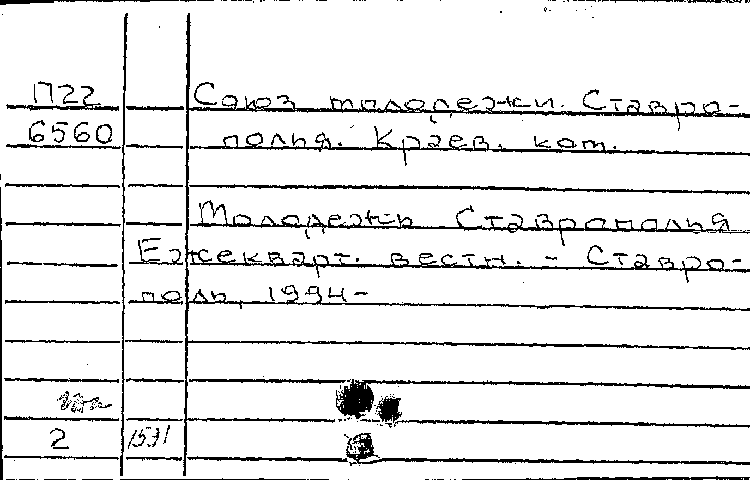 П22 Союз молодежи. Ставро-
6560 полья. Краев. ком.
Молодежь Ставрополья
Ежекварт. вестн. - Ставро-
поль, 1994-
2 1531